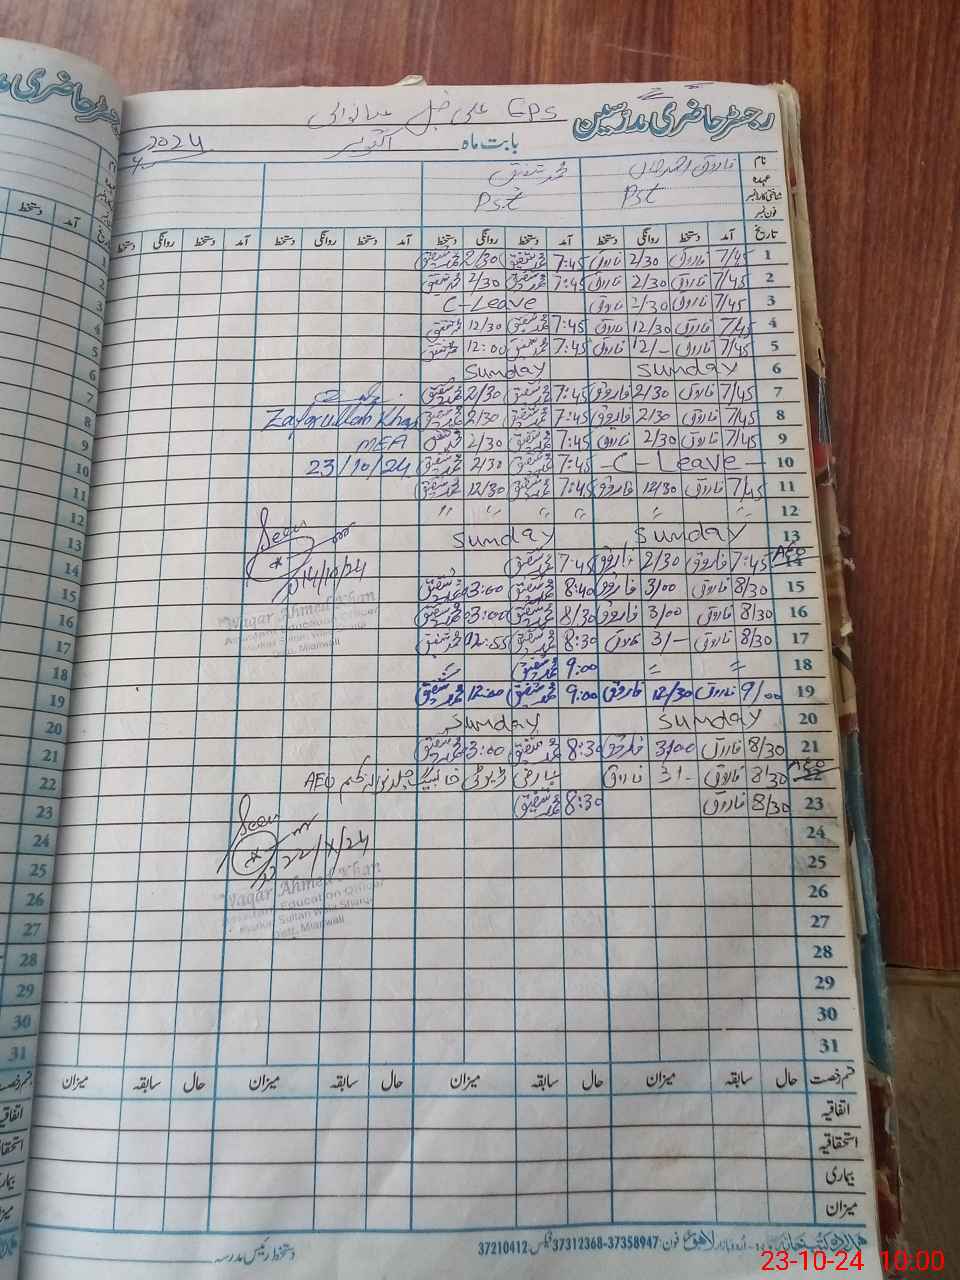 رجسٹر حاضری مدرسین
GPS
بابت ماہ اکتوبر 2024
نام فاروق احمد خان محمد شفیق
عہدہ Pst Pst
شناختی کارڈ نمبر
فون نمبر
تاریخ آمد دستخط روانگی دستخط آمد دستخط روانگی دستخط آمد دستخط روانگی دستخط آمد دستخط روانگی دستخط
1 7/45 فاروق 2/30 فاروق 7:45 محمد شفیق 2/30 محمد شفیق
2 7/45 فاروق 2/30 فاروق 7:45 محمد شفیق 2/30 محمد شفیق
3 7/45 فاروق 2/30 فاروق C-Leave
4 7/45 فاروق 12/30 فاروق 7:45 محمد شفیق 12/30 محمد شفیق
5 7/45 فاروق 12/- فاروق 7:45 محمد شفیق 12:00 محمد شفیق
6 Sunday Sunday
7 7/45 فاروق 2/30 فاروق 7:45 محمد شفیق 2/30 محمد شفیق
8 7/45 فاروق 2/30 فاروق 7:45 محمد شفیق 2/30 محمد شفیق Zafarullah Khan
9 7/45 فاروق 2/30 فاروق 7:45 محمد شفیق 2/30 محمد شفیق MEA
10 -C-Leave- 7:45 محمد شفیق 2/30 محمد شفیق 23/10/24
11 7/45 فاروق 12/30 فاروق 7:45 محمد شفیق 12/30 محمد شفیق
12 " " " "
13 Sunday Sunday Seen
14 AEO 7:45 فاروق 2/30 فاروق 7:45 محمد شفیق 14/10/24
15 8/30 فاروق 3/00 فاروق 8:40 محمد شفیق 3:00 محمد شفیق
Waqar Ahmed Khan
16 8/30 فاروق 3/00 فاروق 8/30 محمد شفیق 3:00 محمد شفیق
Assistant Education Officer
17 8/30 فاروق 3/- فاروق 8:30 محمد شفیق 12:55 محمد شفیق
Distt. Mianwali
18 = = 9:00 محمد شفیق
19 9/00 فاروق 12/30 فاروق 9:00 محمد شفیق 12:00 محمد شفیق
20 Sunday Sunday
21 8/30 فاروق 3/00 فاروق 8:30 محمد شفیق 3:00 محمد شفیق
22 AEO 8/30 فاروق 3/- فاروق AEO
23 8/30 فاروق 8:30 محمد شفیق
Seen
24
22/X/24
25
Waqar Ahmed Khan
26
Assistant Education Officer
27
Distt. Mianwali
28
29
30
31
قسم رخصت حال سابقہ میزان حال سابقہ میزان حال سابقہ میزان حال سابقہ میزان
اتفاقیہ
استحقاقیہ
بیماری
میزان
دستخط رئیس مدرسہ
اردو بازار لاہور فون: 37358947-37312368 فیکس: 37210412
23-10-24 10:00